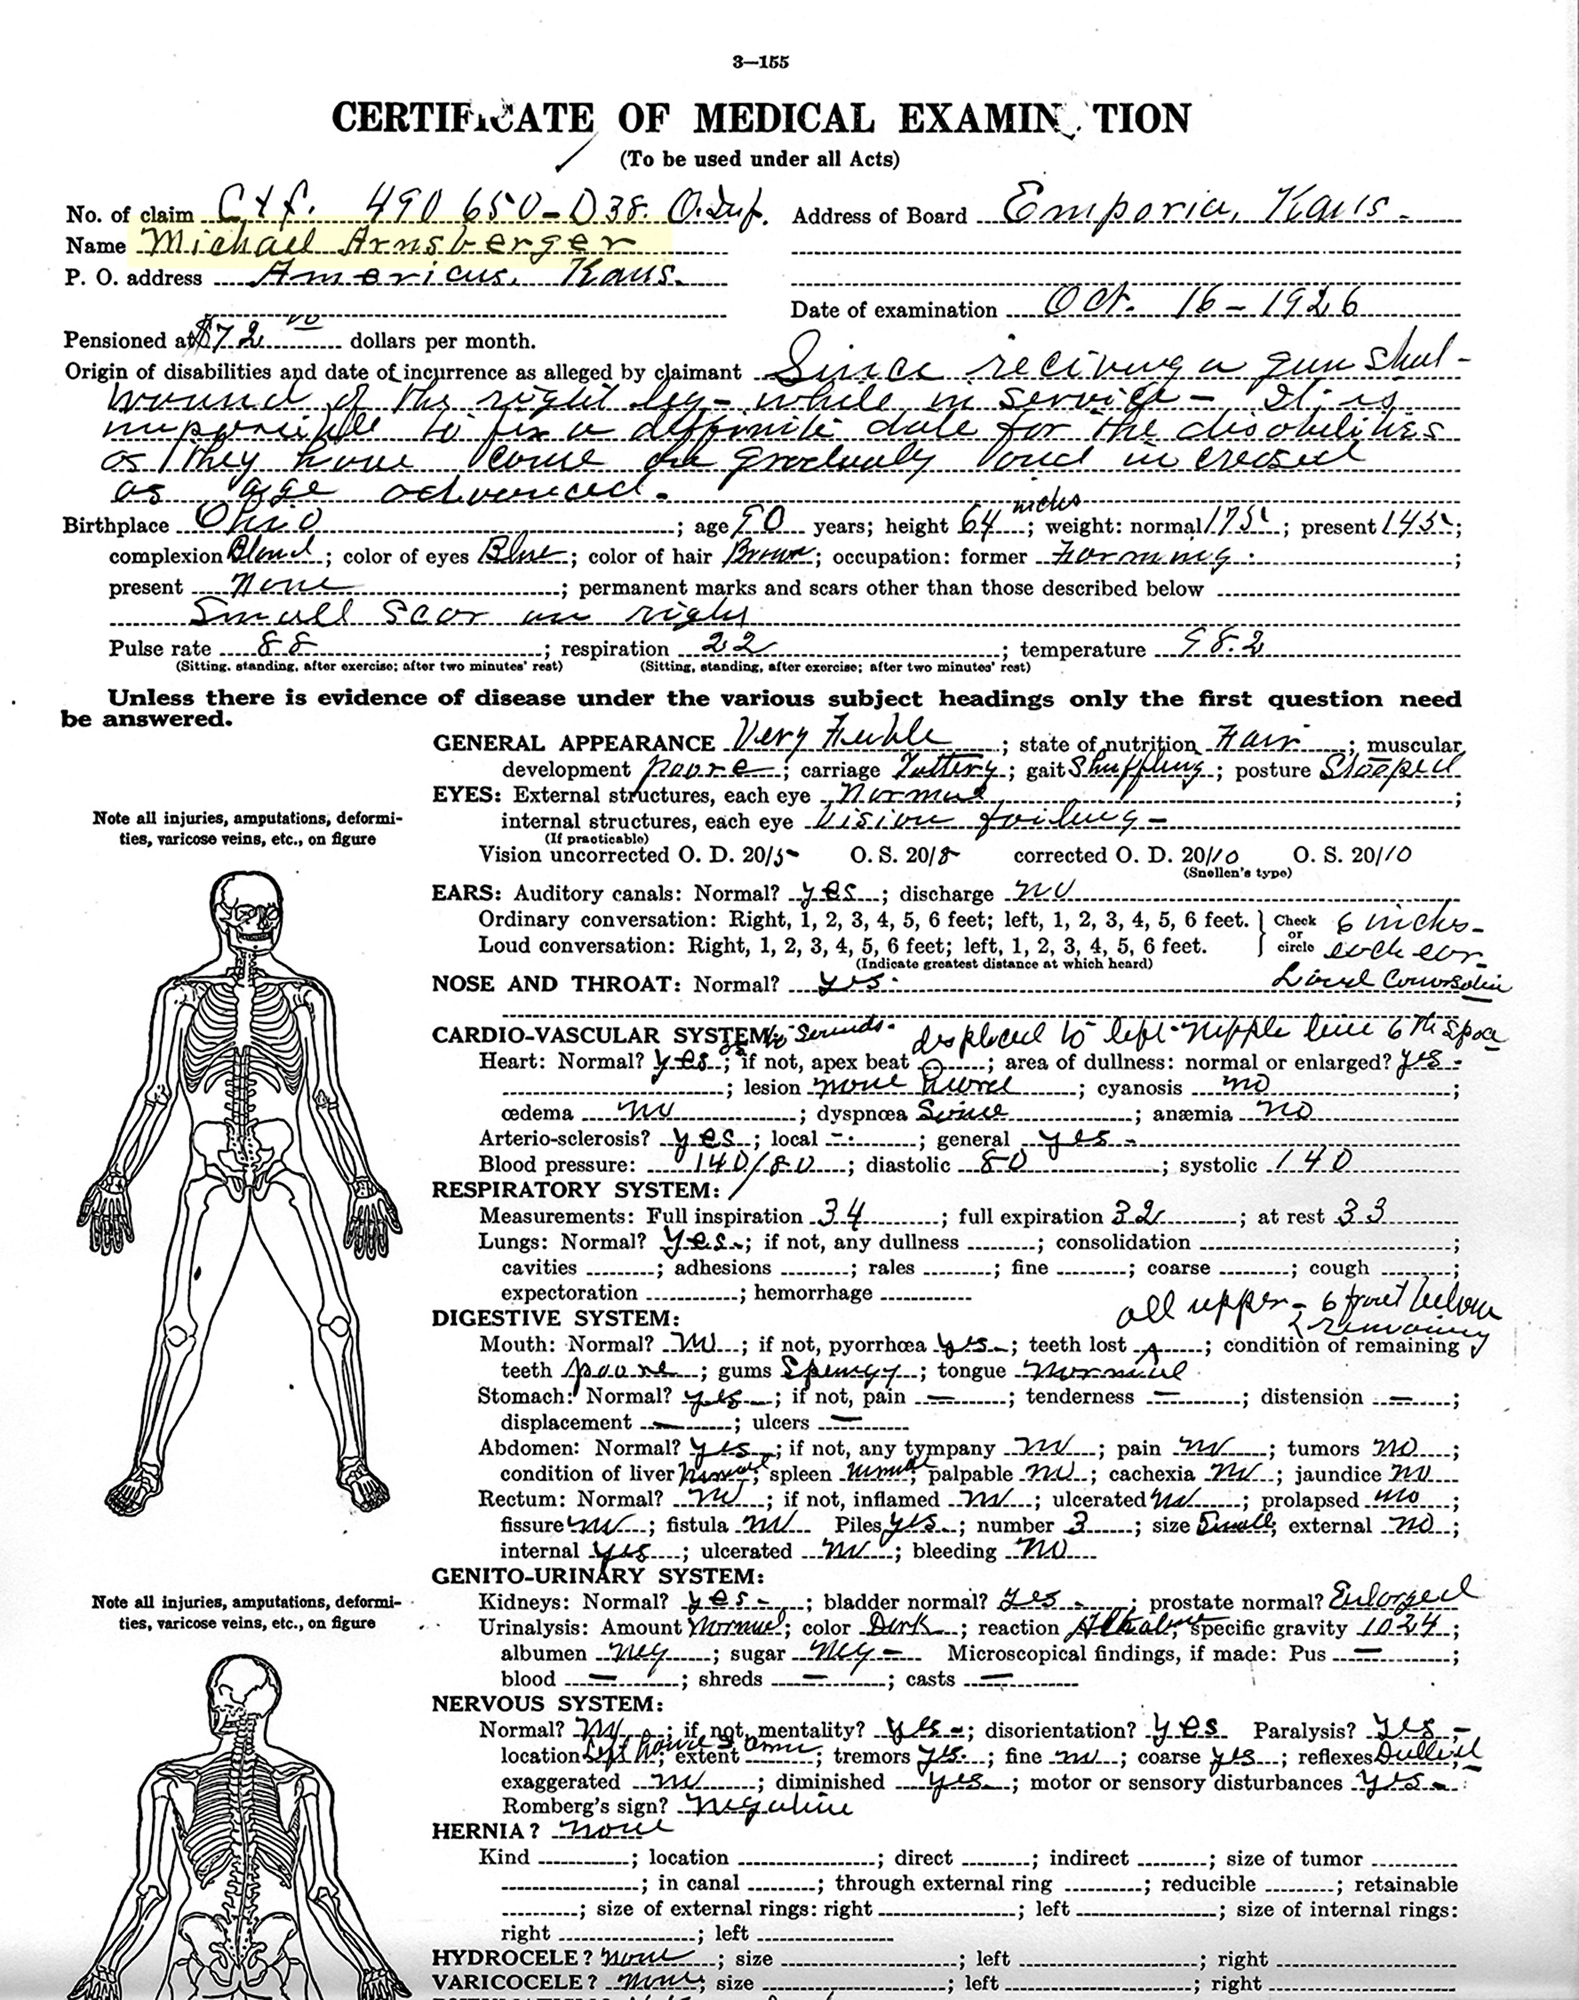 3—155
CERTIFICATE OF MEDICAL EXAMINATION
(To be used under all Acts)
No. of claim Ctf. 490 650-D38. O. Inf. Address of Board Emporia, Kans.
Name Michael Arnsberger
P. O. address Americus, Kans.
Date of examination Oct. 16-1926
Pensioned at $72.00 dollars per month.
Origin of disabilities and date of incurrence as alleged by claimant Since reciving a gun shot
wound of the right leg - while in service - It is
impossible to fix a deffinite date for the disabilities
as they have come on gradualy and increased
as age advanced.
Birthplace Ohio; age 90 years; height 64 inches; weight: normal 175; present 145;
complexion Blond; color of eyes Blue; color of hair Brown; occupation: former Farming;
present None; permanent marks and scars other than those described below
Small scar on right
Pulse rate 88; respiration 22; temperature 98.2
(Sitting, standing, after exercise; after two minutes' rest) (Sitting, standing, after exercise; after two minutes' rest)
Unless there is evidence of disease under the various subject headings only the first question need
be answered.
GENERAL APPEARANCE Very Feeble; state of nutrition Fair; muscular
development poore; carriage Tottery; gait Shuffling; posture Stooped
EYES: External structures, each eye Normal;
internal structures, each eye Vision failing -
(If practicable)
Vision uncorrected O. D. 20/5 O. S. 20/8 corrected O. D. 20/10 O. S. 20/10
(Snellen's type)
EARS: Auditory canals: Normal? yes; discharge no
Ordinary conversation: Right, 1, 2, 3, 4, 5, 6 feet; left, 1, 2, 3, 4, 5, 6 feet. Check 6 inches-
or
Loud conversation: Right, 1, 2, 3, 4, 5, 6 feet; left, 1, 2, 3, 4, 5, 6 feet. circle each ear-
(Indicate greatest distance at which heard)
NOSE AND THROAT: Normal? yes. Loud
CARDIO-VASCULAR SYSTEM: to Sounds. displaced to left-Nipple line 6th space
Heart: Normal? yes as; if not, apex beat; area of dullness: normal or enlarged? yes -
; lesion none; cyanosis no;
œdema no; dyspnœa Some; anæmia no
Arterio-sclerosis? yes; local -; general yes -
Blood pressure: 140/80; diastolic 80; systolic 140
RESPIRATORY SYSTEM:
Measurements: Full inspiration 34; full expiration 32; at rest 33
Lungs: Normal? yes; if not, any dullness; consolidation;
cavities; adhesions; rales; fine; coarse; cough;
expectoration; hemorrhage
all upper - 6 front below
DIGESTIVE SYSTEM: remaining
Mouth: Normal? no; if not, pyorrhœa yes; teeth lost; condition of remaining
teeth poore; gums Spongy; tongue Normal
Stomach: Normal? yes; if not, pain —; tenderness —; distension —;
displacement —; ulcers —
Abdomen: Normal? yes; if not, any tympany no; pain no; tumors no;
condition of liver normal; spleen normal; palpable no; cachexia no; jaundice no
Rectum: Normal? no; if not, inflamed no; ulcerated no; prolapsed no;
fissure no; fistula no Piles yes; number 3; size Small; external no;
internal yes; ulcerated no; bleeding no
GENITO-URINARY SYSTEM:
Kidneys: Normal? yes -; bladder normal? yes -; prostate normal? Enlarged
Urinalysis: Amount Normal; color Dark; reaction Alkaline; specific gravity 1024;
albumen neg; sugar neg - Microscopical findings, if made: Pus —;
blood —; shreds —; casts —
NERVOUS SYSTEM:
Normal? no; if not, mentality? yes -; disorientation? yes Paralysis? yes -
location Left hand & arm; extent; tremors yes; fine no; coarse yes; reflexes Dulled
exaggerated no; diminished yes; motor or sensory disturbances yes -
Romberg's sign? Negative
HERNIA? none
Kind; location; direct; indirect; size of tumor
; in canal; through external ring; reducible; retainable
; size of external rings: right; left; size of internal rings:
right; left
HYDROCELE? none; size; left; right
VARICOCELE? none; size; left; right
Note all injuries, amputations, deformi-
ties, varicose veins, etc., on figure
Note all injuries, amputations, deformi-
ties, varicose veins, etc., on figure